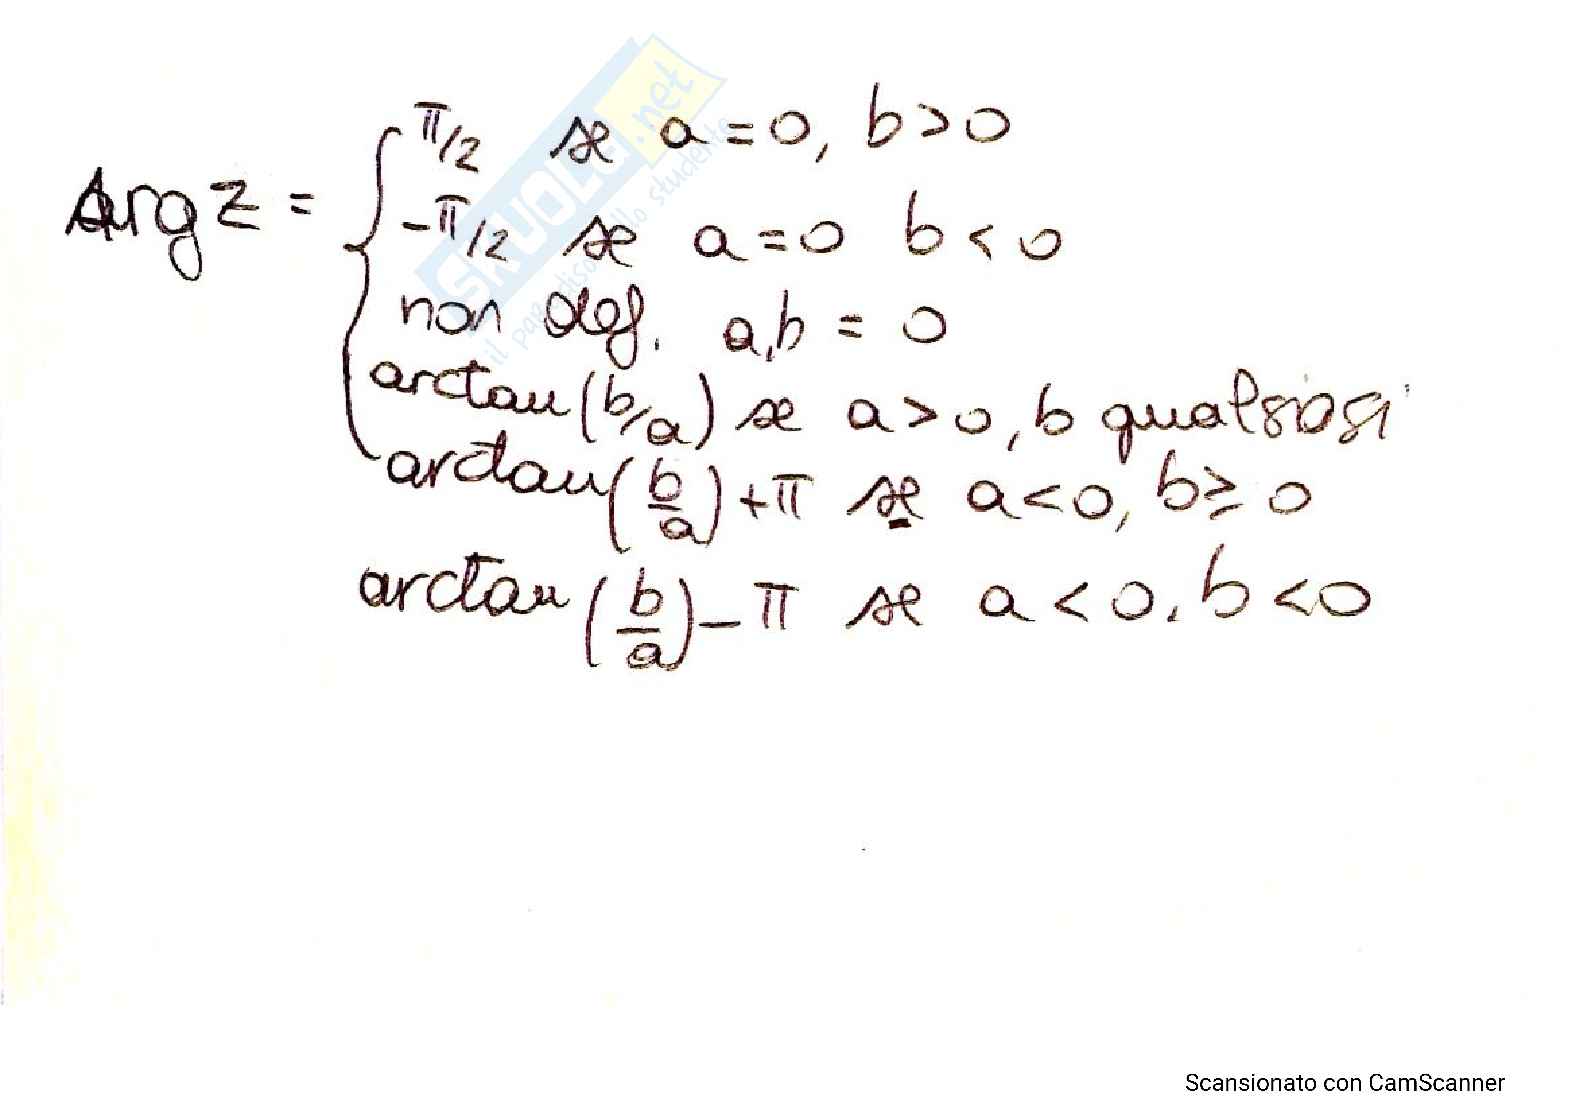 π/2 se a=0, b>0
Arg z =
-π/2 se a=0 b<0
non def. a,b = 0
arctan(b/a) se a>0, b qualsiasi
arctan(b/a)+π se a<0, b≥0
arctan(b/a)-π se a<0, b<0
SKUOLA.net
il paradiso dello studente
Scansionato con CamScanner